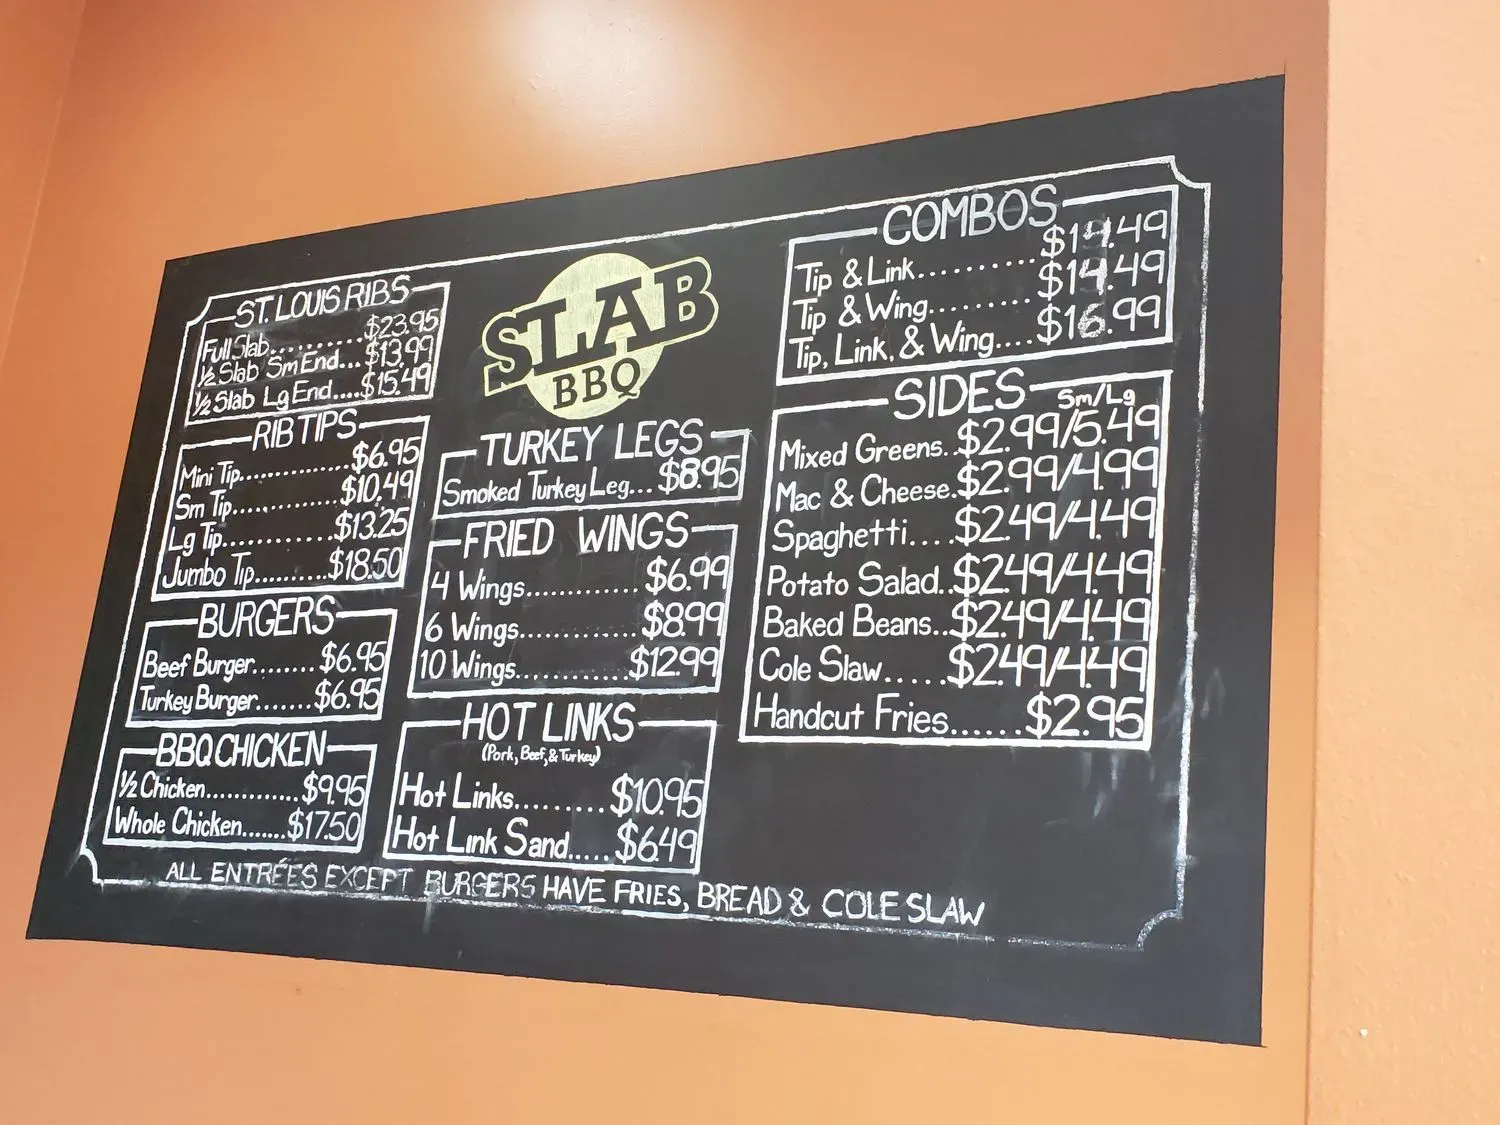 ST. LOUIS RIBS
Full Slab...........$23.95
½ Slab Sm End...$13.99
½ Slab Lg End....$15.49
RIB TIPS
Mini Tip..............$6.95
Sm Tip.............$10.49
Lg Tip.............$13.25
Jumbo Tip..........$18.50
BURGERS
Beef Burger........$6.95
Turkey Burger.......$6.95
BBQ CHICKEN
½ Chicken.............$9.95
Whole Chicken.......$17.50
SLAB
BBQ
TURKEY LEGS
Smoked Turkey Leg...$8.95
FRIED WINGS
4 Wings............$6.99
6 Wings.............$8.99
10 Wings............$12.99
HOT LINKS
(Pork, Beef, & Turkey)
Hot Links.........$10.95
Hot Link Sand.....$6.49
COMBOS
Tip & Link..........$14.49
Tip & Wing.........$14.49
Tip, Link, & Wing....$16.99
SIDES Sm/Lg
Mixed Greens..$2.99/5.49
Mac & Cheese.$2.99/4.99
Spaghetti....$2.49/4.49
Potato Salad..$2.49/4.49
Baked Beans..$2.49/4.49
Cole Slaw.....$2.49/4.49
Handcut Fries......$2.95
ALL ENTRÉES EXCEPT BURGERS HAVE FRIES, BREAD & COLE SLAW